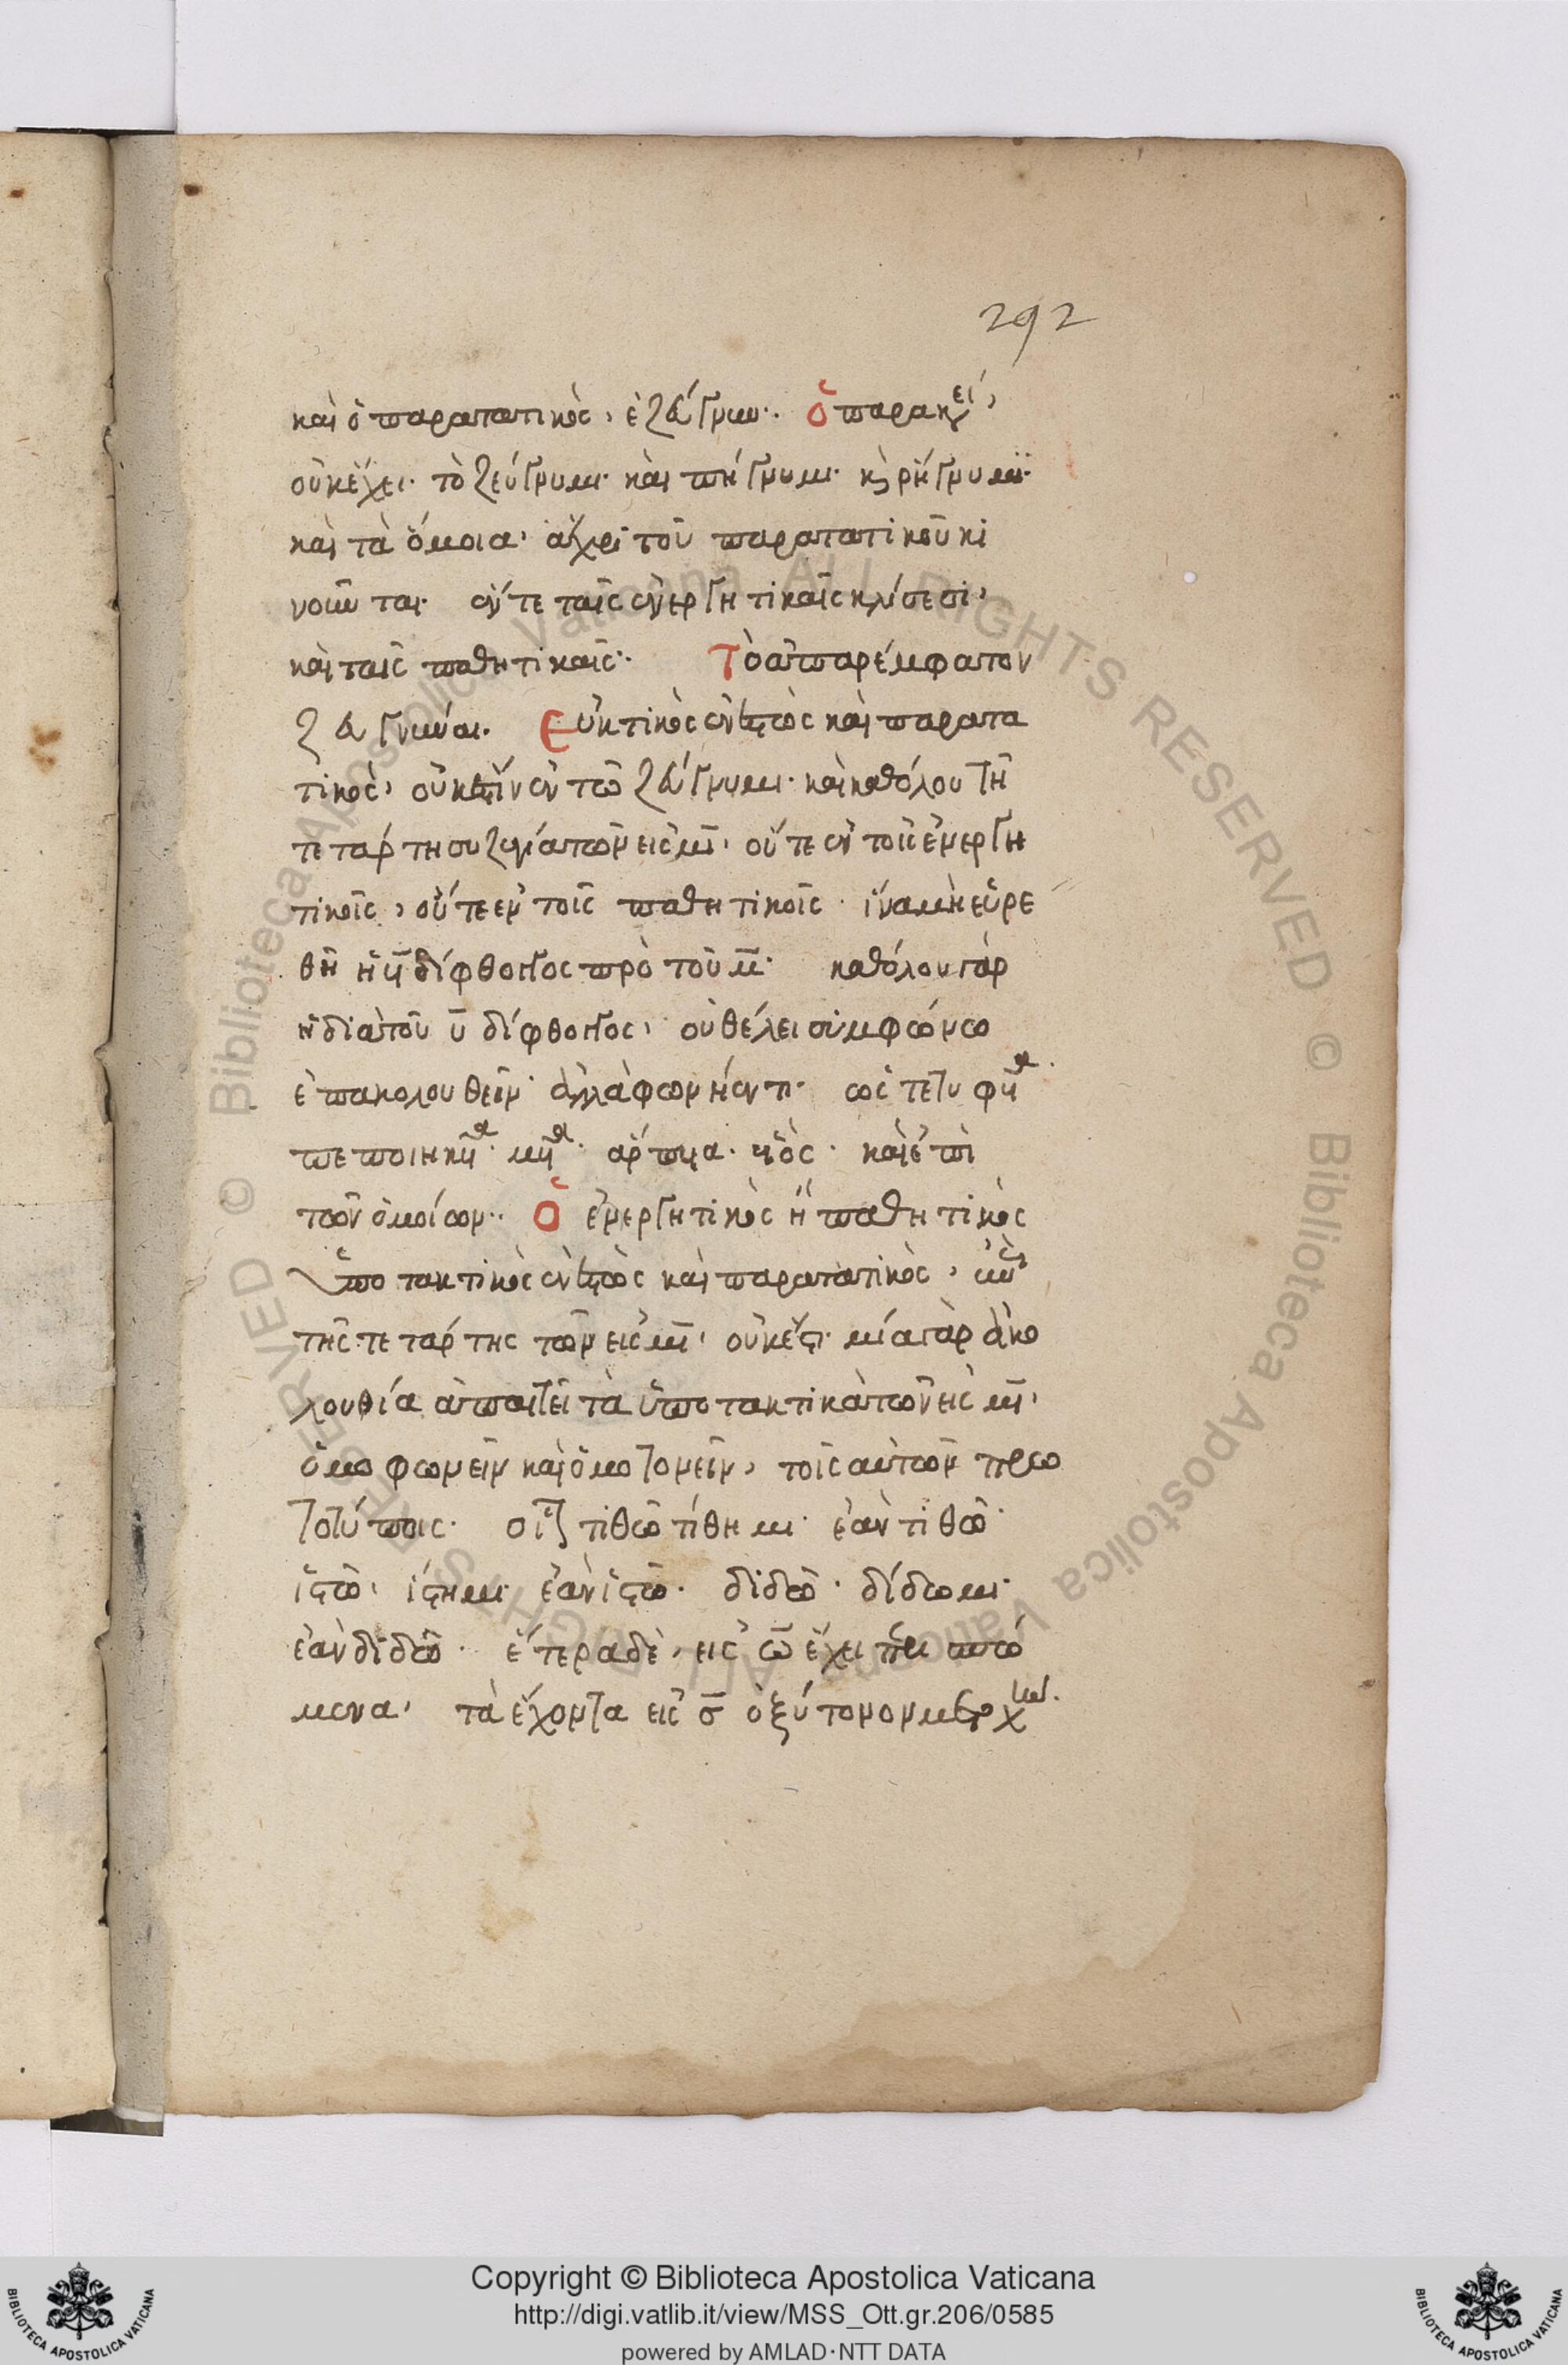 292
καὶ ὁ παρατατικὸς, ἐζεύγνυν. Ὁ παρακεί,
οὐκ ἔχει. τὸ ζεύγνυμι. καὶ πήγνυμι. κ ῥήγνυμι.
καὶ τὰ ὅμοια. ἄχρι τοῦ παρατατικοῦ κι
νοῦνται. ἔν τε ταῖς ἐνεργητικαῖς κλίσεσι,
καὶ ταῖς παθητικαῖς. Τὸ ἀπαρέμφατον
ζευγνύναι. Εὐκτικὸς ἐνεστὼς καὶ παρατα
τικὸς, οὐκ ἔστιν ἐν τῷ ζεύγνυμι. καὶ καθόλου τῇ
τετάρτη συζυγία τῶν εἰς μι. οὔτε ἐν τοῖς ἐνεργη
τικοῖς, οὔτε ἐν τοῖς παθητικοῖς. ἵνα μὴ εὑρε
θῆ ἡ υι δίφθογγος πρὸ τοῦ μ. καθόλου γὰρ
ἡ διὰ τοῦ υ δίφθογγος, οὐ θέλει συμφώνω
ἐπακολουθεῖν. ἀλλὰ φωνήεντι. ὡς τετυφυῖα.
πεποιηκυῖα. μυῖα. ἅρπυια. υἱός. καὶ ἐπὶ
τῶν ὁμοίων. Ὁ ἐνεργητικὸς ἢ παθητικὸς
ὑποτακτικὸς ἐνεστὼς καὶ παρατατικὸς,
τῆς τετάρτης τῶν εἰς μι, οὐκ ἔστι. μία γὰρ ἀκο
λουθία ἀπαιτεῖ τὰ ὑποτακτικὰ τῶν εἰς μι,
ὁμοφωνεῖν καὶ ὁμοτονεῖν, τοῖς αὐτῶν πρω
τοτύποις. οἷον τιθῶ τίθημι. ἐὰν τιθῶ.
ἱστῶ, ἵστημι. ἐὰν ἱστῶ. διδῶ. δίδωμι.
ἐὰν διδῶ. ἕτερα δὲ, εἰς ῶ ἔχει περισπώ
μενα. τὰ ἔχοντα εἰς σ ὀξύτονον μετοχήν.
Copyright © Biblioteca Apostolica Vaticana
http://digi.vatlib.it/view/MSS_Ott.gr.206/0585
powered by AMLAD·NTT DATA